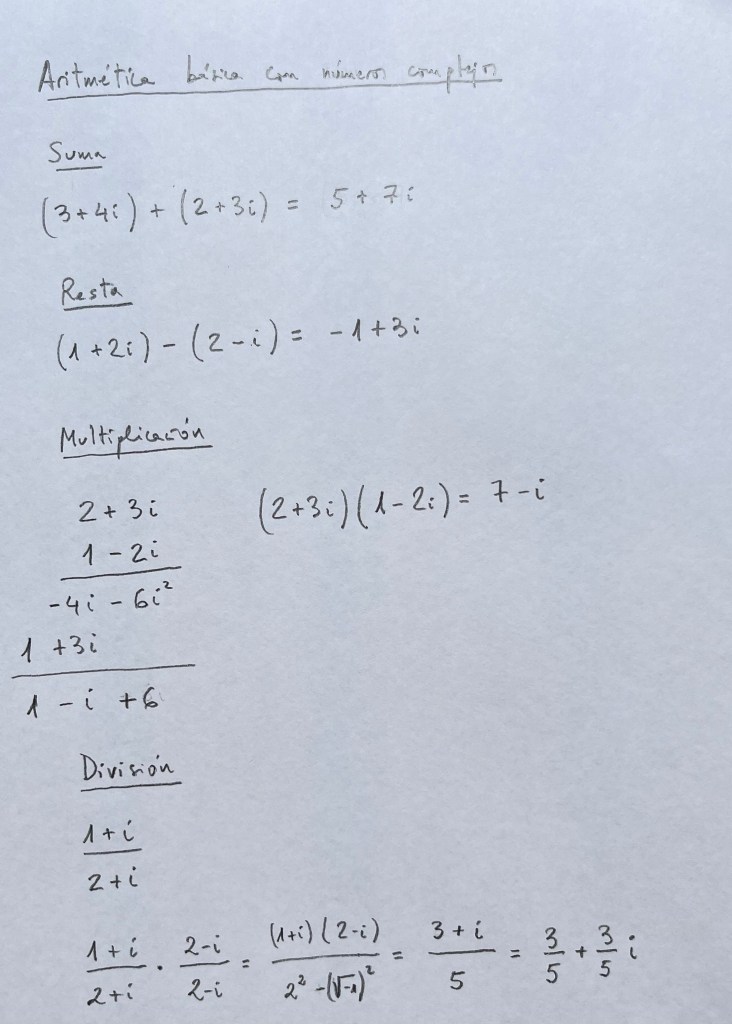 Aritmética básica con números complejos
Suma
(3+4i) + (2+3i) = 5 + 7i
Resta
(1+2i) - (2-i) = -1+3i
Multiplicación
2+3i (2+3i)(1-2i) = 7-i
1-2i
-4i - 6i²
1 +3i
1 - i +6
División
(1+i)/(2+i)
(1+i)/(2+i) · (2-i)/(2-i) = (1+i)(2-i)/(2²-(√-1)²) = (3+i)/5 = 3/5 + 3/5 i